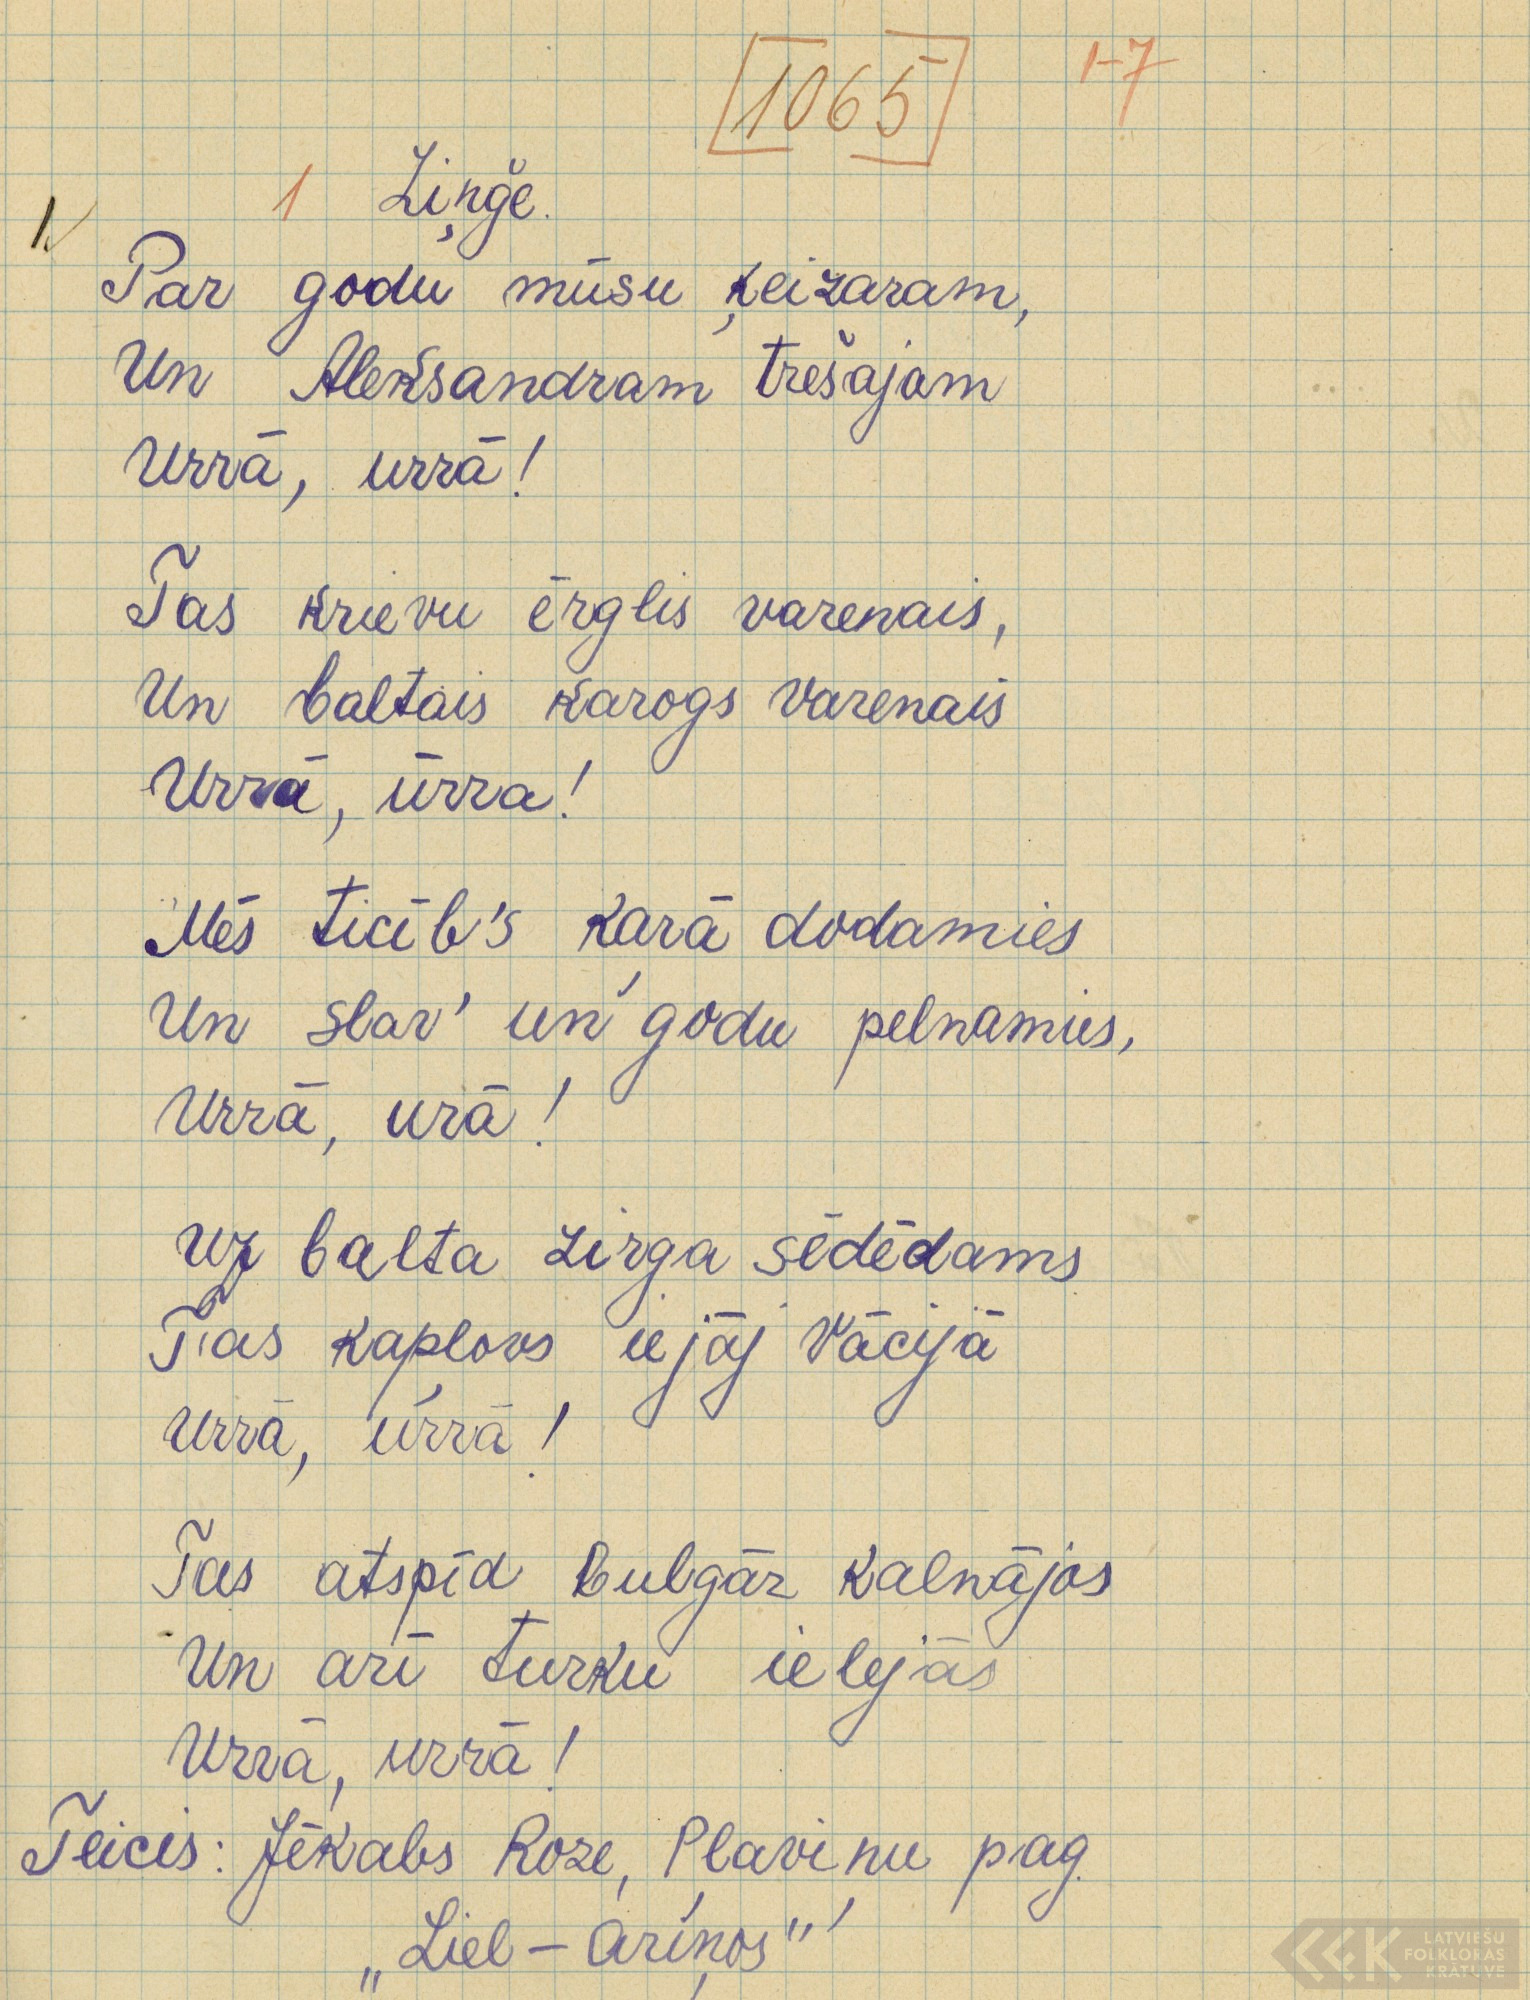 1065
1-7
1 Ziņģe.
1.
Par godu mūsu ķeizaram,
Un Aleksandram trešajam
Urrā, urrā!
Tas krievu ērglis varenais,
Un baltais karogs varenais
Urrā, ūrra!
Mēs ticīb's karā dodamies
Un slav' un godu pelnamies,
Urrā, urā!
Uz balta zirga sēdēdams
Tas kaplovs iejāj Vācijā
Urrā, urrā!
Tas atspīd bulgār kalnājos
Un arī turku ielejās
Urrā, urrā!
Teicis: Jēkabs Roze, Pļaviņu pag.
„Liel-Āriņos"
LATVIEŠU
FOLKLORAS
KRĀTUVE